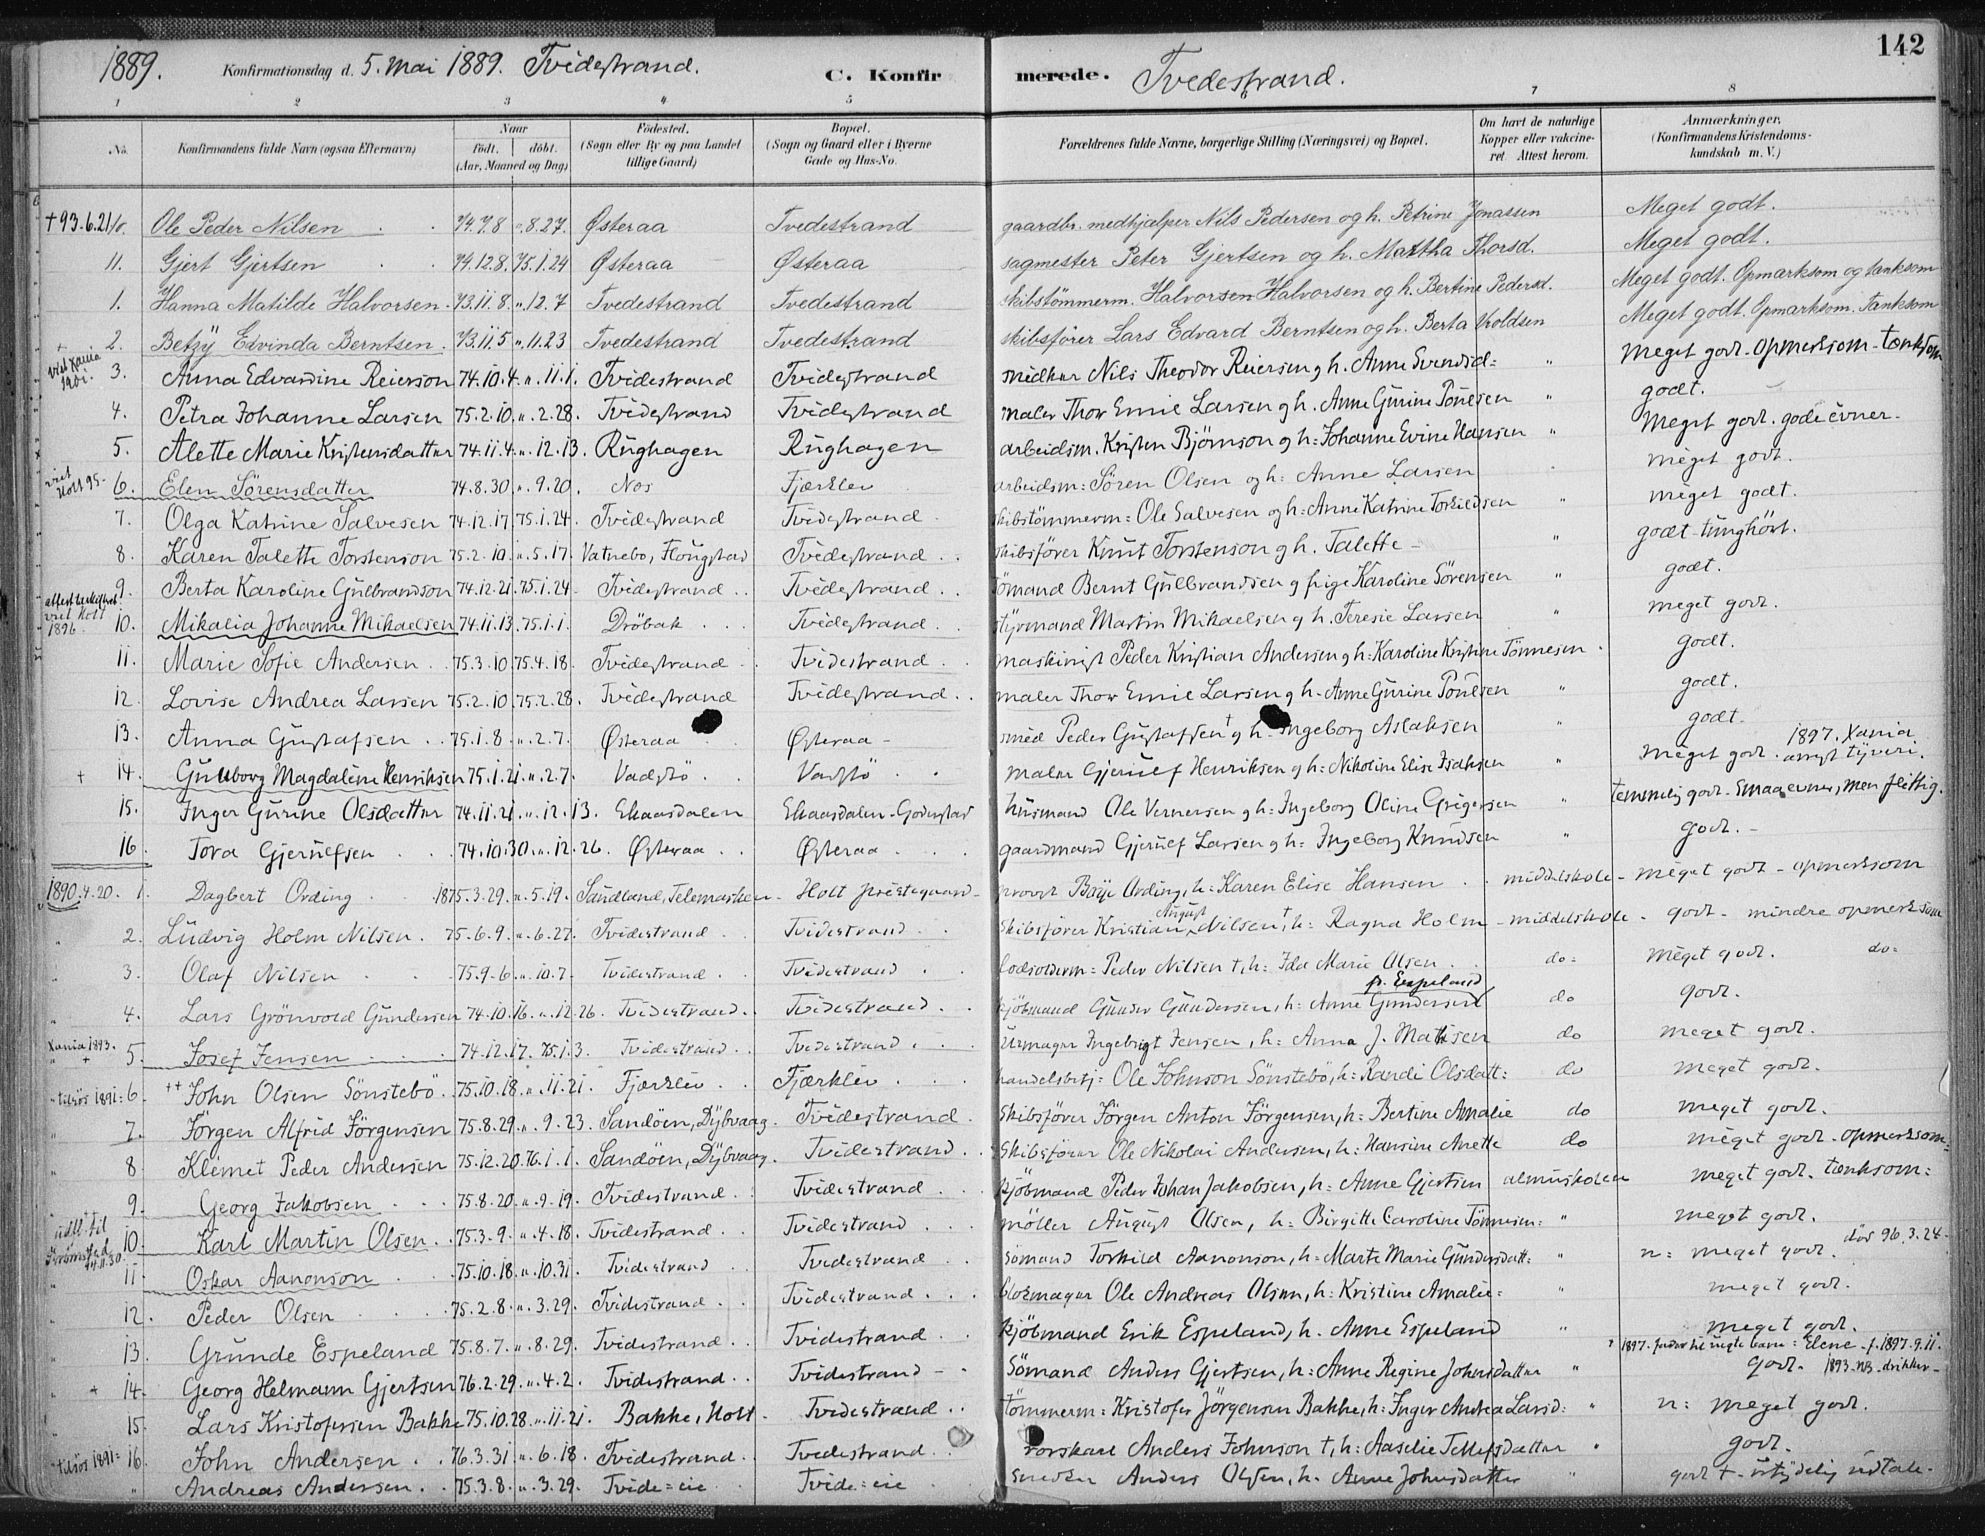 142
1889. Konfirmationsdag d. 5. Mai 1889. Tvidestrand. C. Konfirmerede. Tvedestrand.
1 2 3 4 5 6 7 8
No. Konfirmandens fulde Navn (ogsaa Efternavn) Naar født. døbt. (Aar, Maaned og Dag) Fødested. (Sogn eller By og paa Landet tillige Gaard) Bopæl. (Sogn og Gaard eller i Byerne Gade og Hus-No. Forældrenes fulde Navne, borgerlige Stilling (Næringsvei) og Bopæl. Om havt de naturlige Kopper eller vakcineret Attest herom. Anmærkninger. (Konfirmandens Kristendomskundskab m. V.)
+ 93.6.21 Ole Peder Nilsen 74.7.8 ". 8.27. Østeraa Tvedestrand gaardbr. medhjælper Nils Pedersen og h. Petrine Jonassen Meget godt.
11. Gjert Gjertsen 74.12.8. 75.1.24 Østeraa Østeraa sagmester Peter Gjertsen og h. Martha Thorsd. Meget godt.
1. Hanna Matilde Halvorsen 73.11.8 ". 12.7 Tvedestrand Tvedestrand skibstømmerm. Halvorsen Halvorsen og h. Bertine Pedersd. Meget godt. Opmærksom og tænksom
+ 2. Betzy Edvinda Berntsen 73.11.5 ". 11.23 Tvedestrand Tvedestrand skibsfører Lars Edvard Berntsen og h. Berta Wroldsen Meget godt. Opmærksom. Tænksom
viet Xania 1901. 3. Anna Edvardine Reierson 74.10.4. ". 11.1. Tvidestrand Tvidestrand Nils Theodor Reiersen og h. Anne Svendsd= " Meget godt - opmerksom - tænksom
4. Petra Johanne Larsen 75.2.10. ". 2.28. Tvidestrand Tvidestrand maler Thor Emil Larsen og h. Anne Gurine " godt.
5. Alette Marie Kristensdatter 74.11.4. ". 12.13. Rughagen Rughagen arbeidsm. Kristen Bjørnson og h= Johanne Evine Hansen " Meget godt. gode evner-
viet Holt 95- 6. Elen Sörensdatter 74.8.30 ". 9.20. Nes Fjærklev arbeidsm= Sören Olsen og h= Anne Larsen meget godt.
7. Olga Katrine Salvesen 74.12.17. 75.1.24. Tvidestrand Tvidestrand skibstömmerm= Ole Salvesen og h= Anne Katrine Torkildsen " meget godt.
8. Karen Talette Torstenson 75.2.10. ". 5.17. Vatnebo, Flougstad Tvidestrand skibsförer Knut Torstenson og h. Talette - " godt - tunghört.
9. Berta Karoline Gulbrandson 74.12.21. 75.1.24. Tvidestrand Tvidestrand sömand Bernt Gulbrandsen og Karoline Sörensen " godt.
viet Holt 1896. 10. Mikalia Johanne Mikaelsen 74.11.13. 75.1.1. Dröbak Tvidestrand styrmand Martin Mikaelsen og h. Teresie Larsen " meget godt.
11. Marie Sofie Andersen 75.3.10. 75.4.18. Tvidestrand Tvidestrand maskinist Peder Kristian Andersen og h= Karoline Kristine Tönnesen godt.
12. Lovise Andrea Larsen 75.2.10. 75.2.28. Tvidestrand Tvidestrand maler Thor Emil Larsen og h. Anne Gurine " godt.
13. Anna Gustafsen 75.1.8. ". 2.7. Østeraa Østeraa - smed Peder Gustafsen † og h. Ingeborg Aslaksen " godt.
+ 14. Gunborg Magdalene Henriksen 75.1.21. ". 2.7. Vadstö Vadstö maler Gjerulf Henriksen og h= Nikoline Elise Isaksen " Meget godt. 1897. Xania arrest tyveri.
15. Inger Gurine Olsdatter 74.11.21. ". 12.13. Skaasdalen Skaasdalen - Goderstad husmand Ole Vernersen og h= Ingeborg Oline Gregersen " temmelig godt - smaa evner, men flittig.
16. Tora Gjerulfsen 74.10.30. ". 12.26. Østeraa Østeraa gaardmand Gjerulf Larsen og h= Ingeborg Knudsen " godt. -
1890.4.20. 1. Dagbert Ording 1875.3.29. ". 5.19. Sandland, Telemarken Holt præstegaard - provst Böye Ording, h= Karen Elise Hansen middelskole - meget godt - opmerksom
" 2. Ludvig Holm Nilsen 75.6.9. ". 6.27. Tvidestrand Tvidestrand Skibsförer Kristian August Nilsen †, h= Ragna Holm - middelskole - godt - mindre opmerksom
" 3. Olaf Nilsen 75.9.6. ". 10.7. Tvidestrand Tvidestrand lodsolderm= Peder Nilsen †, h= Ida Marie Olsen do= meget godt. do=
" 4. Lars Grönvold Gundersen 74.10.16. ". 12.26. Tvidestrand Tvidestrand kjöbmand Gunder Gundersen, h= Anne Gundersen f. Espeland do godt.
Xania 1893. " + 5. Josef Jensen 74.12.17. 75.1.3. Tvidestrand Tvidestrand Urmager Ingebrigt Jensen, h= Anna J. Madsen do meget godt.
" tilsös 1891= 6. ++ John Olsen Sönstebö 75.10.18. ". 11.21. Fjærklev Fjærklev handelsbetj= Ole Johnson Sönstebö, h= Randi Olsdatt= do meget godt.
" 7. Jörgen Alfrid Jörgensen 75.8.29. ". 9.23. Sandöen, Dybvaag. Tvidestrand Skibsförer Jörgen Anton Jörgensen, h= Bertine Amalie do meget godt.
" 8. Klemet Peder Andersen 75.12.20. 76.1.1. Sandöen, Dybvaag. Tvidestrand Skibsförer Ole Nikolai Andersen, h= Hansine Anette do meget godt - opmerksom=
" 9. Georg Jakobsen 75.8.20. ". 9.19. Tvidestrand Tvidestrand kjöbmand Peder Johan Jakobsen, h= Anne Gjertsen almuskolen meget godt. tænksom=
10. Karl Martin Olsen 75.3.9. ". 4.18. Tvidestrand Tvidestrand möller August Olsen, h= Birgitte Caroline Tönnesen= " meget godt.
11. Oskar Aanonson 75.10.18. ". 10.31. Tvidestrand Tvidestrand Sömand Torkild Aanonson, h= Marte Marie Gundersdatt= " n= meget godt. död 96.3.24-
" 12. Peder Olsen 75.2.8. ". 3.29. Tvidestrand Tvidestrand blokmager Ole Andreas Olsen, h= Kristine Amalie= " meget godt.
" 13. Grunde Espeland 75.8.7. ". 8.29. Tvidestrand Tvidestrand kjöbmand Erik Espeland, h. Anne Espeland " meget godt.
" + 14. Georg Helmann Gjertsen 76.2.29. ". 4.2. Tvidestrand Tvidestrand Sömand Anders Gjertsen, h= Anne Regine Johnsdatter " ? 1897. fader til uegte barn= Elene - f. 1897.9.11. godt. 1893. NB. drikker-
" 15. Lars Kristofersen Bakke 75.10.28. ". 11.21. Bakke, Holt. Tvedestrand tömmerm= Kristofer Jörgensen Bakke, h= Inger Andrea Larsd= " n= meget godt.
" tilsös 1891= 16. John Andersen 76.3.31. ". 6.18. Tvidestrand Tvedestrand Anders Johnson †, h= Aaselie Tellefsdatter " godt.
" Andreas Andersen 75.3.8. ". 3.29. Tvide=eie Tvide=eie Anders Olsen, h. Anne Johnsdatter " godt + - utydelig udtale-